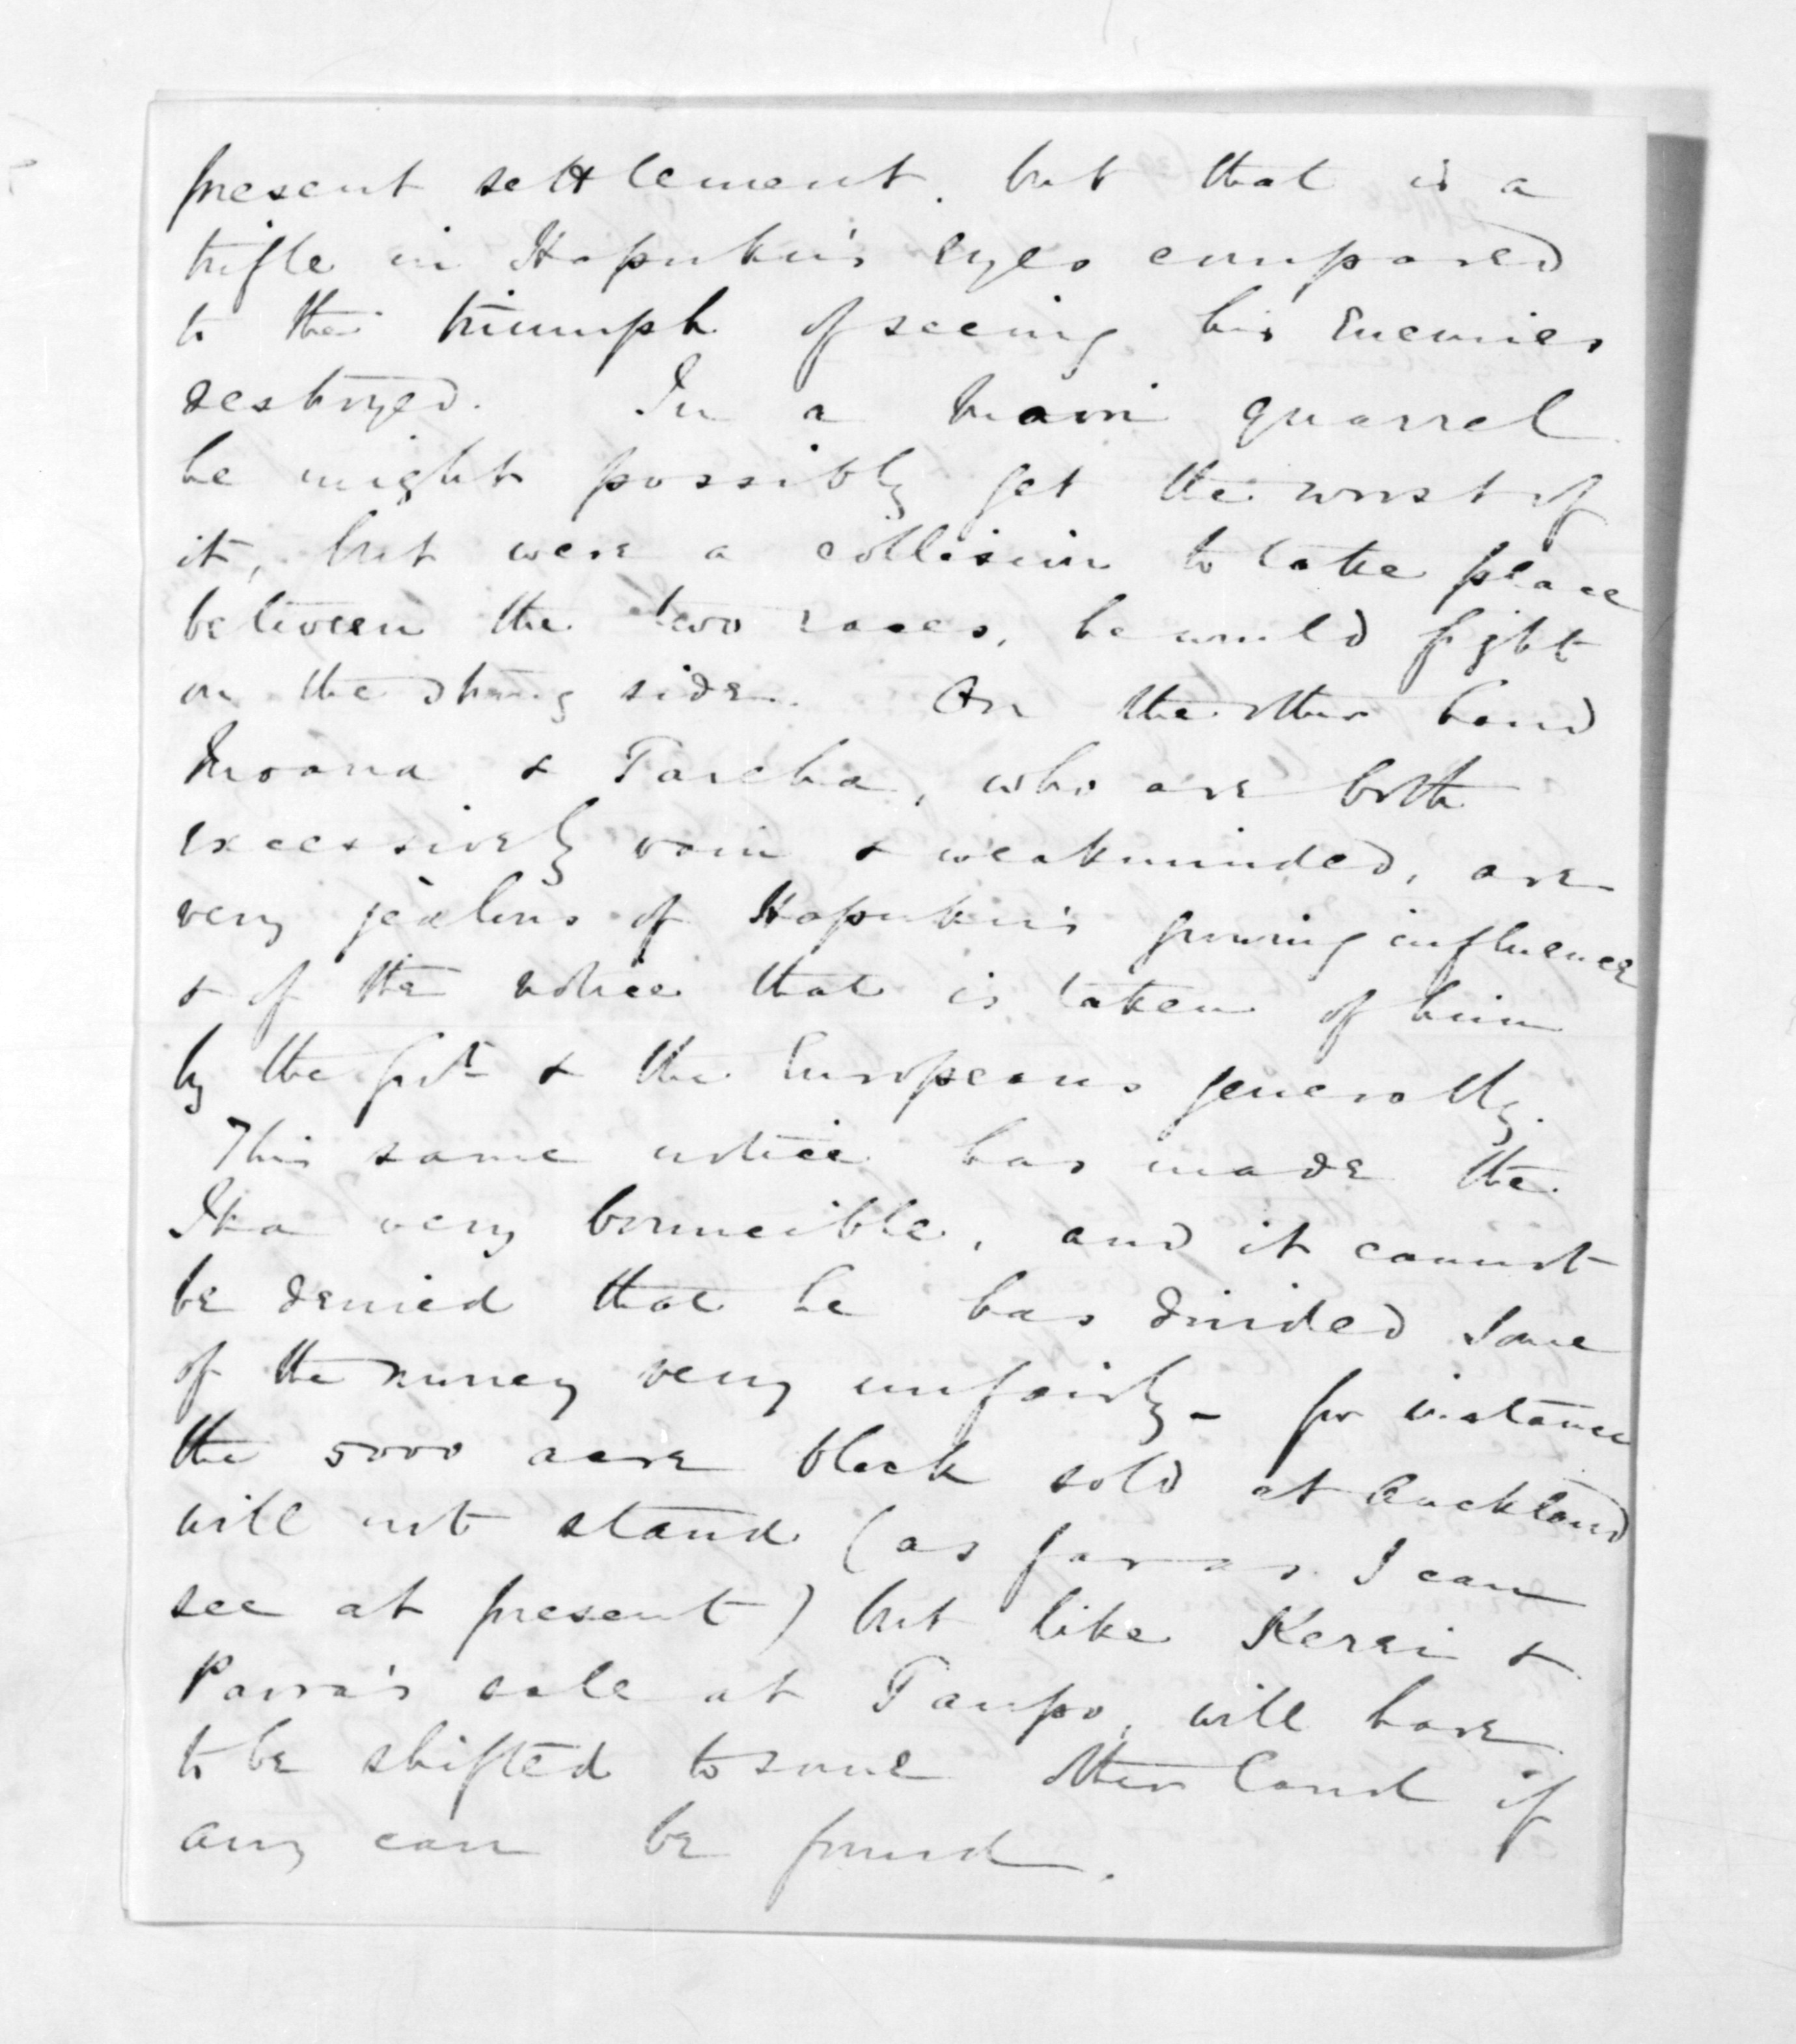 present settlement. but that is a
trifle in Hapuku's eyes compared
to the triumph of seeing his Enemies
destroyed. In a maori quarrel
he might possibly get the worst of
it, but were a collision to take place
between the two races, he would fight
on the strong side. On the other hand
Moana & Tareha, who are both
excessively vain & weakminded, are
very jealous of Hapuku's growing influence
& of the notice that is taken of him
by the Govt & the Europeans generally.
This same notice has made the
Ika very bounceible, and it cannot
be denied that he has divided some
of the money very unfairly - for instance
the 5000 acre block sold at Auckland
will not stand (as far as I can
see at present) but like Kerei &
Parra's sale at Taupo, will have
to be shifted to some other land if
any can be found.